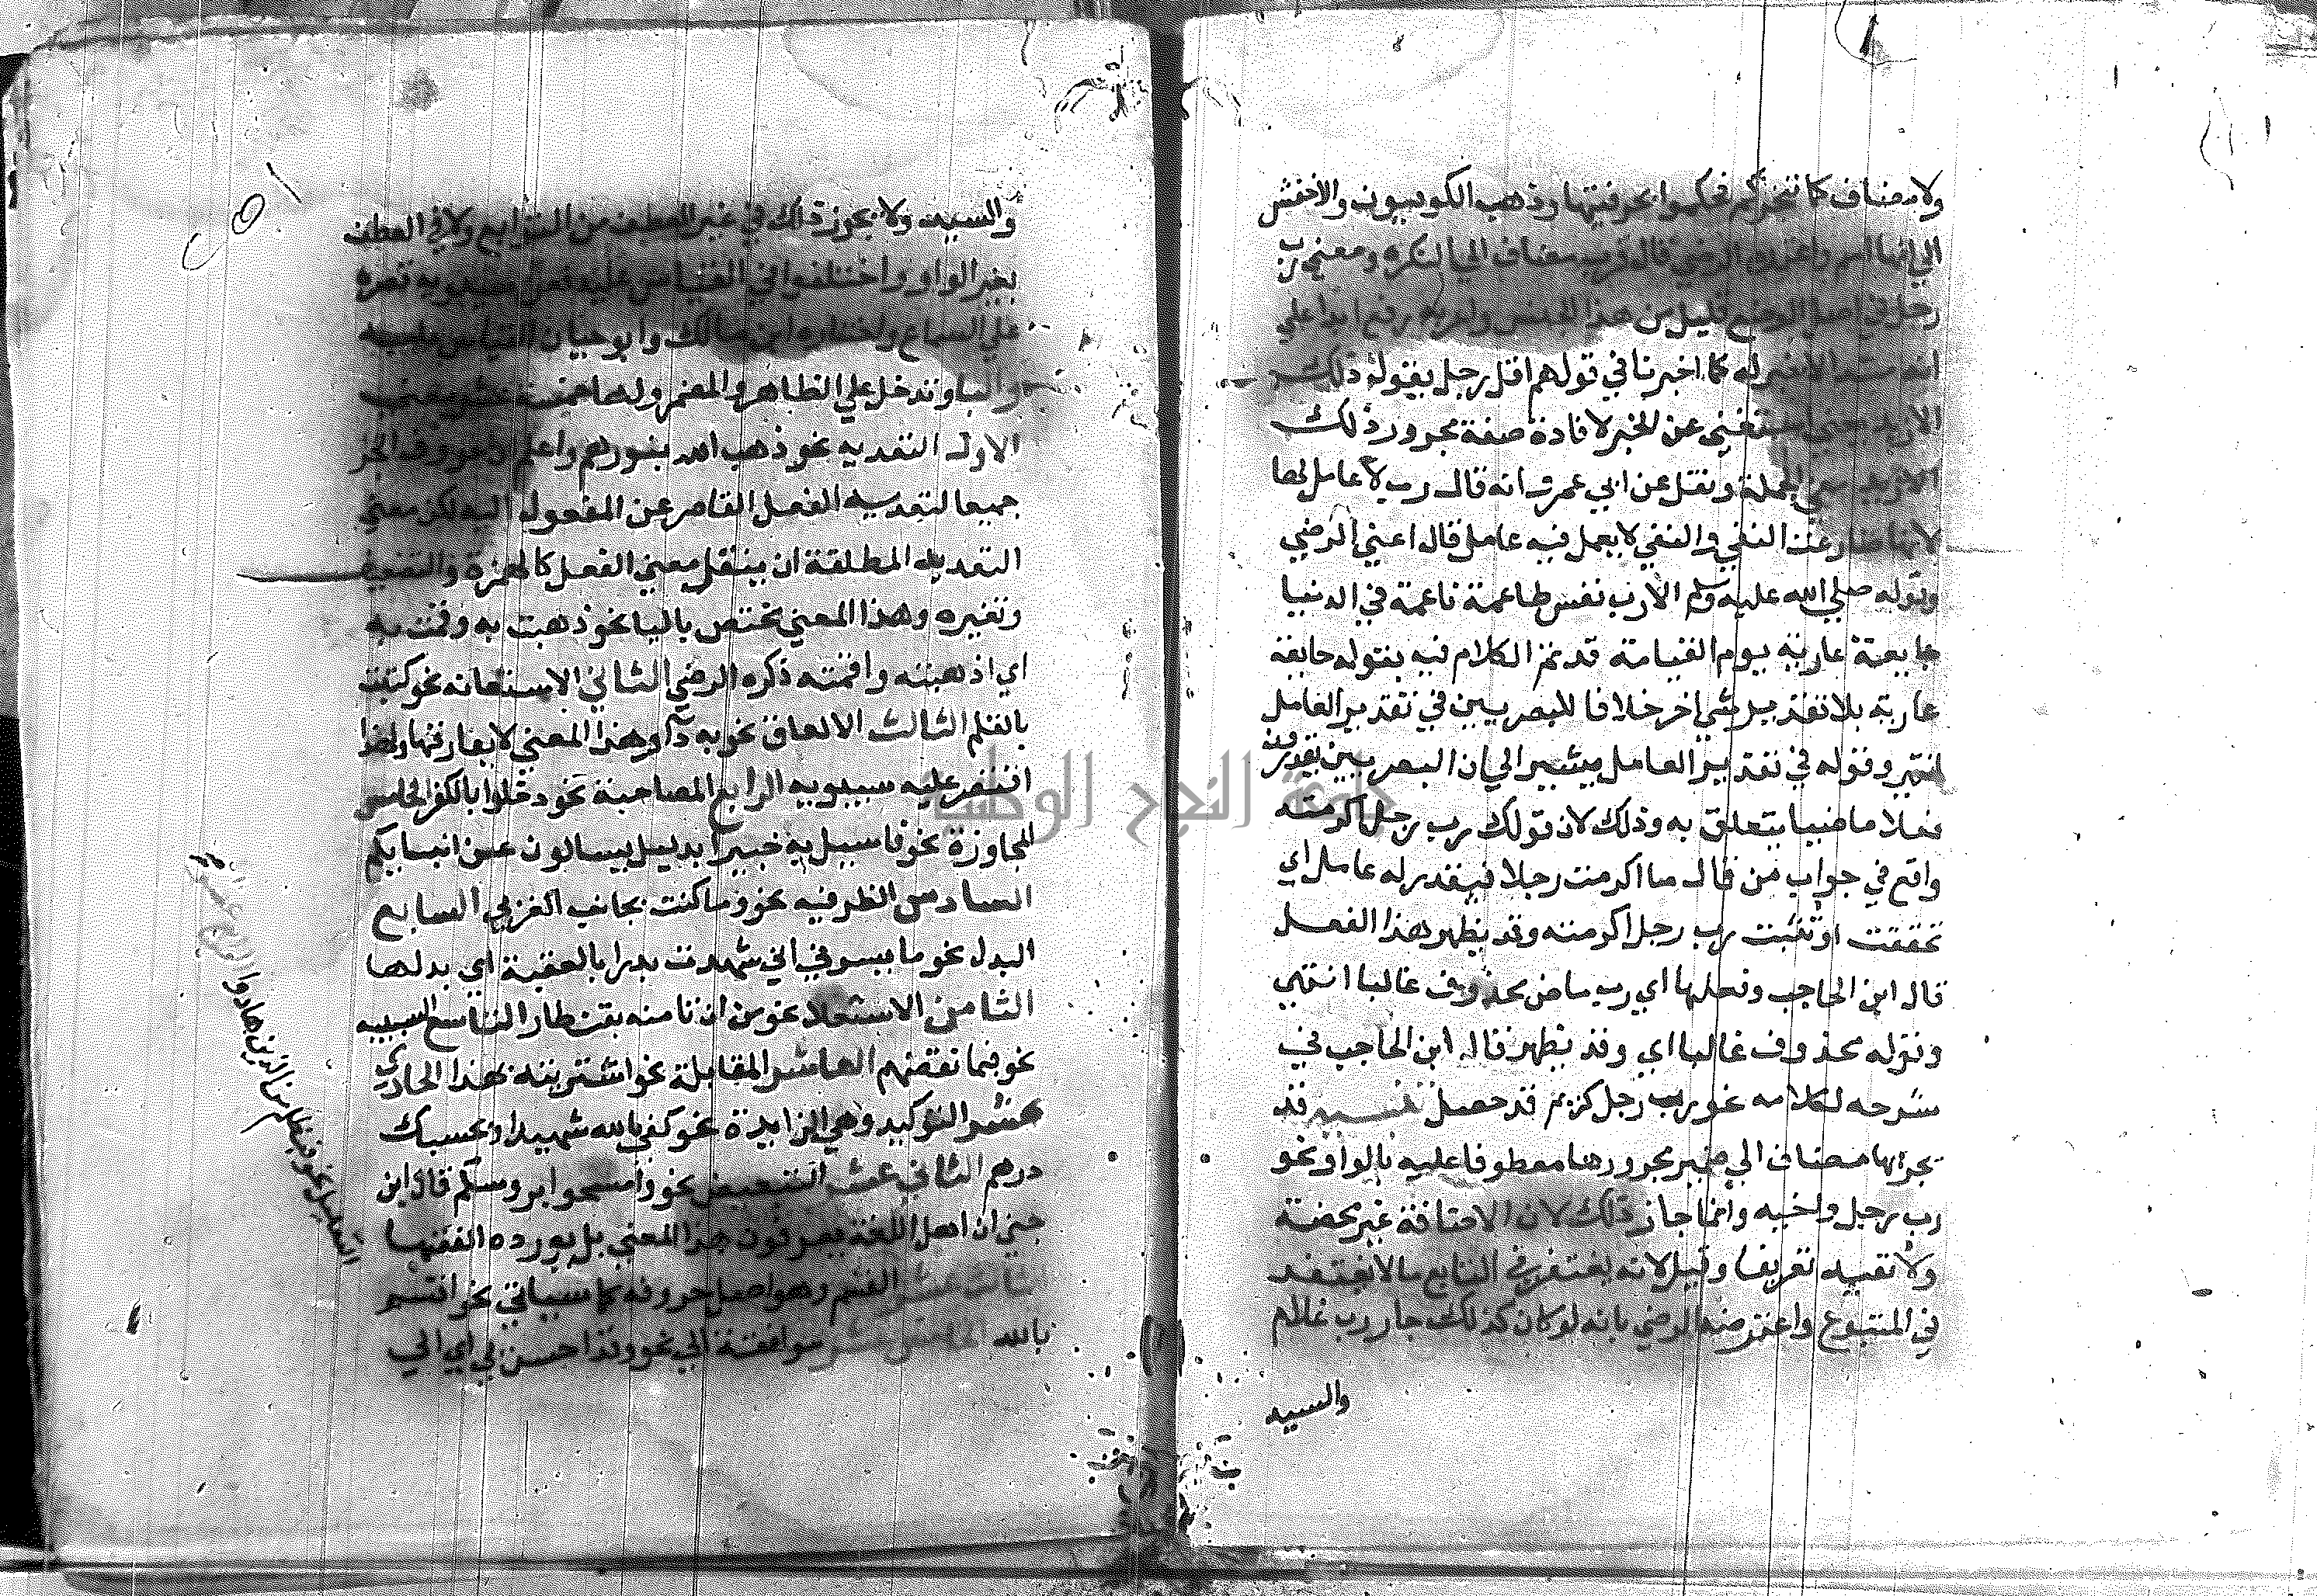 ولا مضاف كما نتخبركم فحكموا بحرفيتها وذهب الكوفيون والاخفش
الي انها اسم الرضي قال فرب مضاف الي النكره ومعني رب
رجل في اصل الوضع قليل من هذا الجنس رفع ابدا علي
انه لا خبر له كما اخبرنا في قولهم اقل رجل يقول ذلك
الا زيد عن الخبر لافادة صفة مجرور ذلك
الجملة ونقل عن ابي عمرو انه قال رب لا عامل لها
لانها النفي والنفي لا يعمل فيه عامل قال اعني الرضي
وقوله صلي الله عليه وسلم الا رب نفس طاعمة ناعمة في الدنيا
جايعة عارية يوم القيامة قد تم الكلام فيه بقوله جايعة
عارية بلا تقدير شي اخر خلافا للبصريين في تقدير العامل
انتهي وقوله في تقدير العامل يشير الي ان البصريين يقدرون
فعلا ماضيا يتعلق به وذلك لان قولك رب رجل اكرمته
واقع في جواب من قال ما اكرمت رجلا فيقدر له عامل اي
تحققت او تثبت رب رجل اكرمته وقد يظهر هذا الفعل
قال ابن الحاجب وفعلها اي رب ماض محذوف غالبا انتهي
وقوله محذوف غالبا اي وقد يظهر قال ابن الحاجب في
شرحه لكلامه نحو رب رجل كريم قد حصل قد
تجر رب مضاف الي ضمير مجرورها معطوفا عليه بالواو نحو
رب رجل واخيه وانما جاز ذلك لان الاضافة غير محضة
ولا تفيد تعريفا وقيل لانه يغتفر في التابع ما لا يغتفر
في المتبوع واعترضه الرضي بانه لو كان كذلك جاز رب غلام
والسيد
والسيد ولا يجوز ذلك في غير العطف من التوابع ولا في العطف
بغير الواو واختلفوا في القياس عليه فعن سيبويه قصره
علي السماع واختاره ابن مالك وابو حيان القياس عليه
والبا وتدخل علي الظاهر والمضمر ولها خمسة عشر معني
الاول التعديه نحو ذهب الله بنورهم واعلم ان حروف الجر
جميعا لتعديه الفعل القاصر عن المفعول اليه لكن معني
التعديه المطلقة ان ينقل معني الفعل كالهمزة والتضعيف
وتغيره وهذا المعني مختص بالبا نحو ذهبت به وقمت به
اي اذهبته واقمته ذكره الرضي الثاني الاستعانه نحو كتبت
بالقلم الثالث الالصاق نحو به داء وهذا المعني لا يفارقها ولهذا
اقتصر عليه سيبويه الرابع المصاحبة نحو دخلوا بالكفر الخامس
المجاوزة نحو فاسيل به خبيرا بدليل يسالون عن انبايكم
السادس الظرفيه نحو وما كنت بجانب الغربي السابع
البدل نحو ما يسرني اني شهدت بدرا بالعقبة اي بدلها
الثامن الاستعلا نحو من ان تامنه بقنطار التاسع السببيه
نحو فبما نقضهم العاشر المقابلة نحو اشتريته بهذا الحادي
عشر التوكيد وهي الزايدة نحو كفي بالله شهيدا وبحسبك
درهم الثاني عشر التبعيض نحو وامسحوا بروسكم قال ابن
جني ان اهل اللغة يعرفون هذا المعني بل يورده الفقها
الثالث عشر القسم وهو اصل حروفه كما سياتي نحو اقسم
بالله الخامس عشر موافقة الي نحو وقد احسن بي اي الي
التعليل نحو فبظلم من الذين هادوا الرابع عشر
جامعة النجاح الوطنية